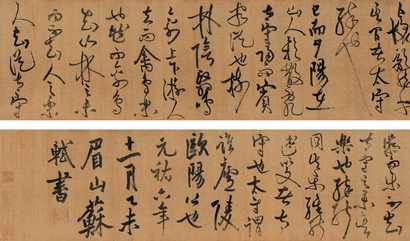 醉也
已而夕陽在
山人影散亂
太守歸而賓
客從也樹
林陰翳鳴
聲上下遊人
去而禽鳥樂
也然而禽鳥
知山林之樂
而不知人之樂
人知從太守
遊而樂而不知
太守之樂其
樂也醉能
同其樂醒能
述以文者太
守也太守謂
誰廬陵
歐陽脩也
元祐六年
十一月乙未
眉山蘇
軾書